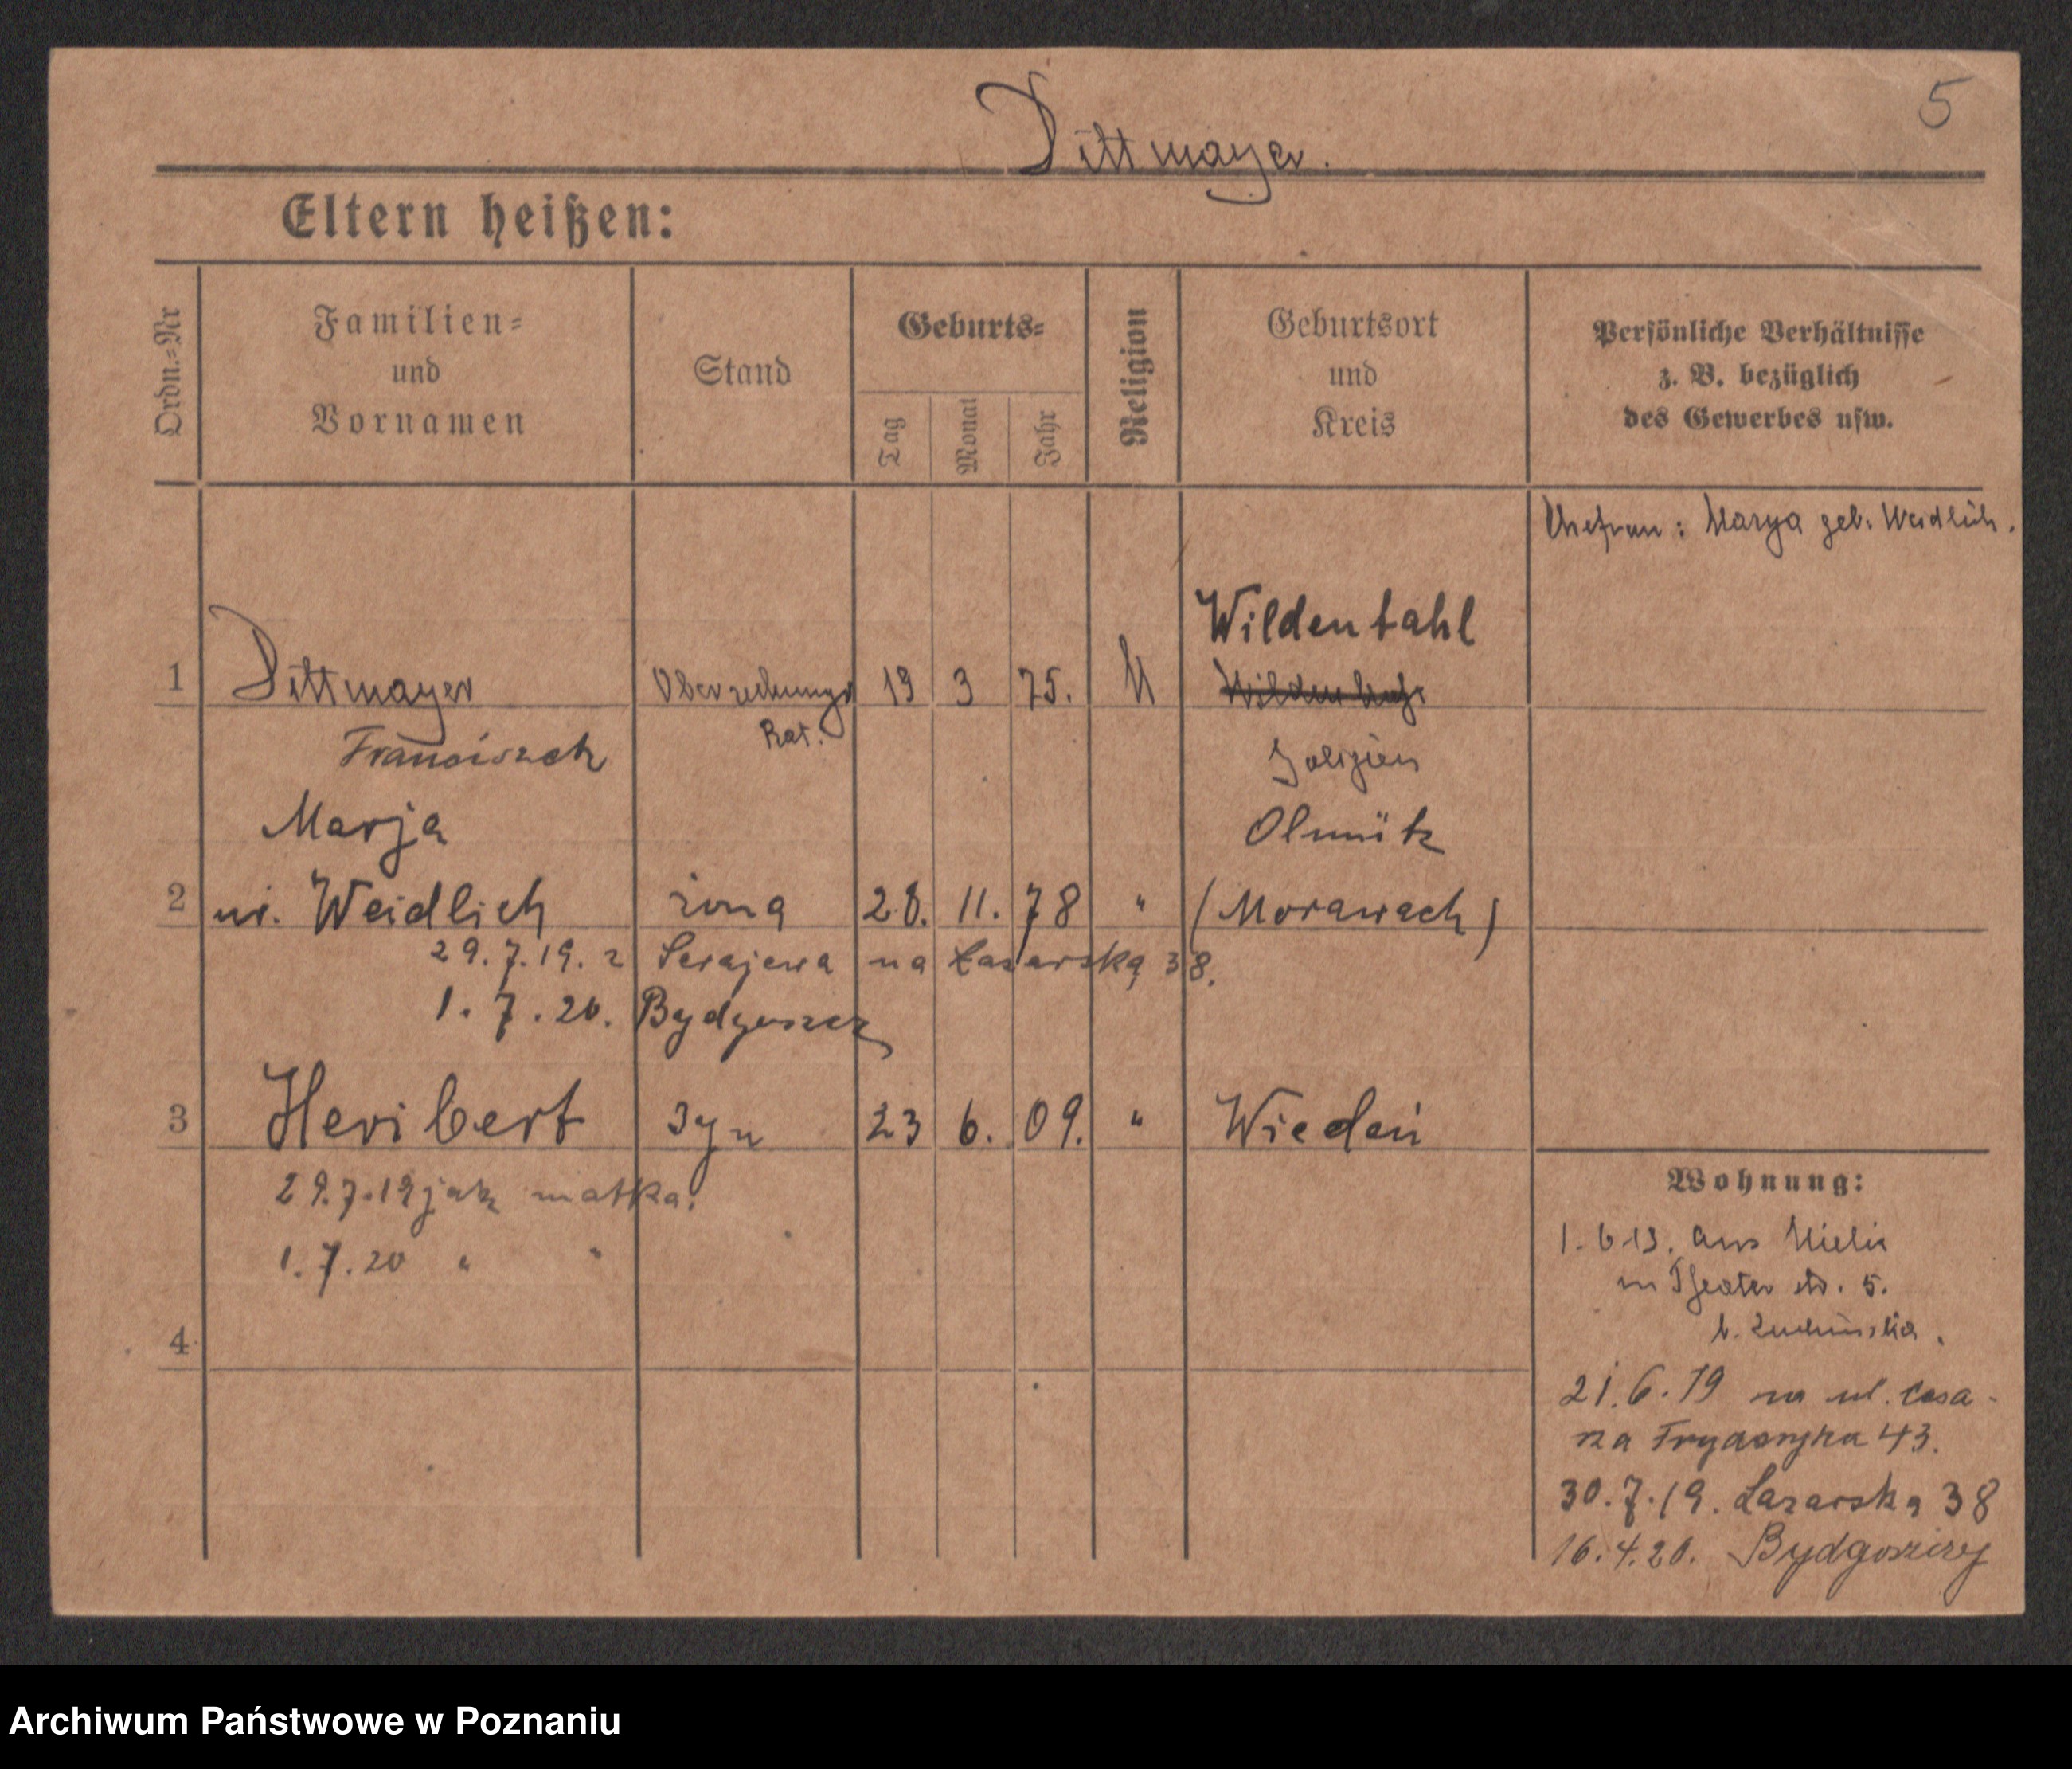 5
Dittmayer.
Eltern heißen:
Ordn.=Nr
Familien=
und
Vornamen
Stand
Geburts=
Tag
Monat
Jahr
Religion
Geburtsort
und
Kreis
Persönliche Verhältnisse
z. B. bezüglich
des Gewerbes usw.
Ehefrau: Marya geb. Weidlich.
Wildentahl
1 Dittmayer Oberrechnungs 19 3 75.
Franciszek Rat. Galizien
Marja Olmütz
2 Weidlich żona 28. 11. 78 " (Morawach)
29.7.19. z Serajewa na Łazarską 38.
1.7.20. Bydgoszcz
3 Heribert syn 23 6. 09. " Wiedeń
29.7.19 jak matka.
1.7.20 " "
4
Wohnung:
1.6.13. aus
Theater str. 5.
b.
21.6.19 na ul.
Fryderyka 43.
30.7.19. Łazarska 38
16.4.20. Bydgoszcz
Archiwum Państwowe w Poznaniu